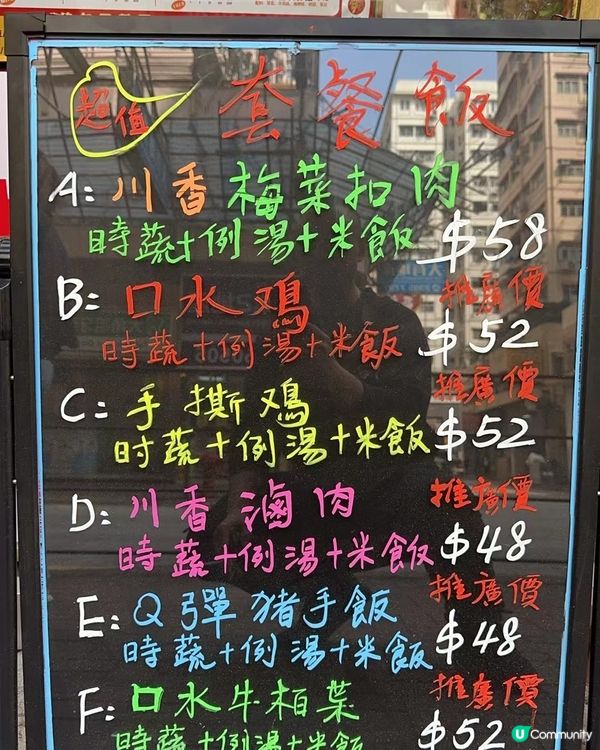 超值 套餐飯
A: 川香梅菜扣肉
時蔬+例湯+米飯 $58
推廣價
B: 口水鸡
時蔬+例湯+米飯 $52
推廣價
C: 手撕鸡
时蔬+例湯+米飯 $52
推廣價
D: 川香滷肉
時蔬+例湯+米飯 $48
推廣價
E: Q彈猪手飯
時蔬+例湯+米飯 $48
推廣價
F: 口水牛栢葉
時蔬+例湯+米飯 $52
U Community